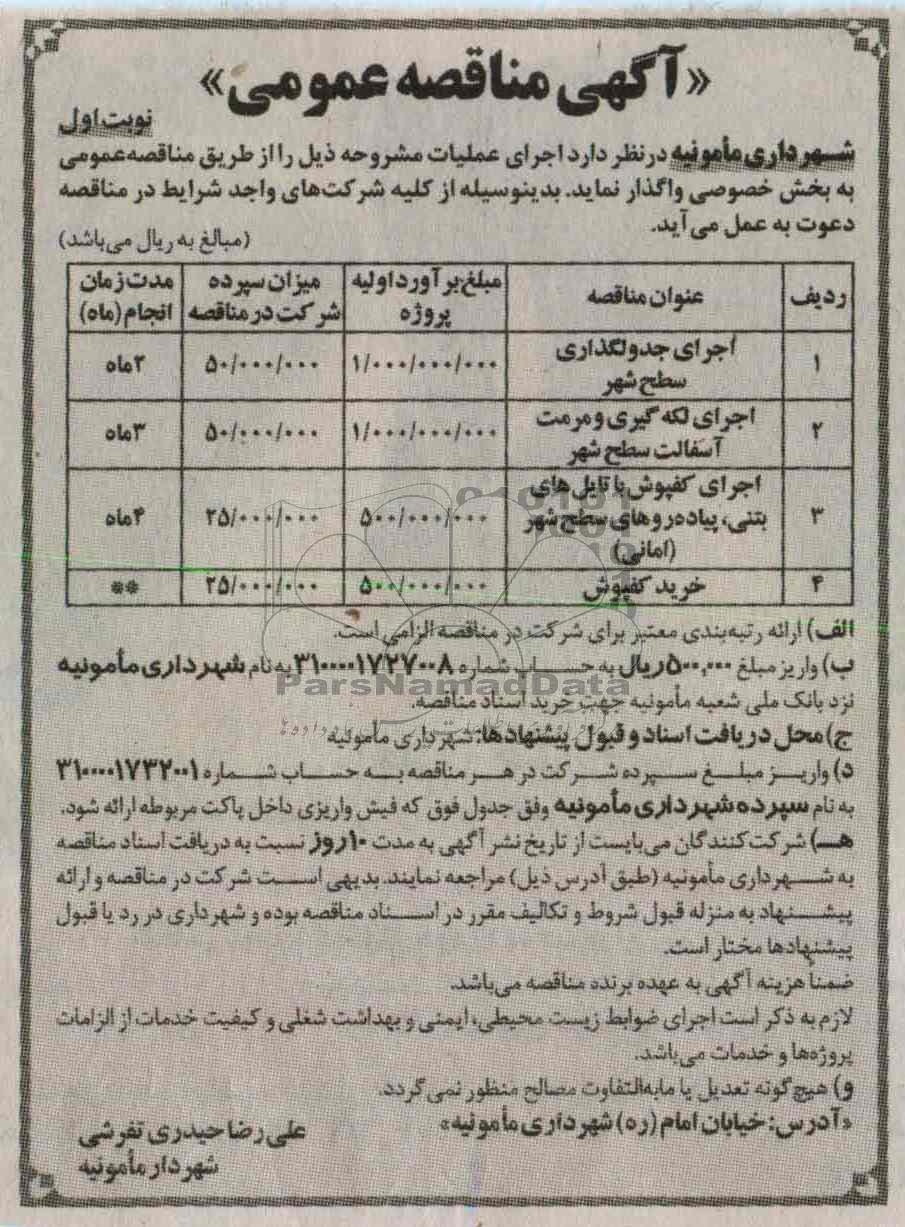 «آگهی مناقصه عمومی»
نوبت اول
شهرداری مأمونیه درنظر دارد اجرای عملیات مشروحه ذیل را از طریق مناقصه عمومی
به بخش خصوصی واگذار نماید. بدینوسیله از کلیه شرکت‌های واجد شرایط در مناقصه
دعوت به عمل می‌آید.
(مبالغ به ریال می‌باشد)
ردیف | عنوان مناقصه | مبلغ برآورد اولیه پروژه | میزان سپرده شرکت در مناقصه | مدت زمان انجام (ماه)
۱ | اجرای جدولگذاری سطح شهر | ۱/۰۰۰/۰۰۰/۰۰۰ | ۵۰/۰۰۰/۰۰۰ | ۲ماه
۲ | اجرای لکه گیری و مرمت آسفالت سطح شهر | ۱/۰۰۰/۰۰۰/۰۰۰ | ۵۰/۰۰۰/۰۰۰ | ۳ماه
۳ | اجرای کفپوش با تایل های بتنی، پیاده‌روهای سطح شهر (امانی) | ۵۰۰/۰۰۰/۰۰۰ | ۲۵/۰۰۰/۰۰۰ | ۴ماه
۴ | خرید کفپوش | ۵۰۰/۰۰۰/۰۰۰ | ۲۵/۰۰۰/۰۰۰ | **
الف) ارائه رتبه‌بندی معتبر برای شرکت در مناقصه الزامی است.
ب) واریز مبلغ ۵۰۰,۰۰۰ ریال به حساب شماره ۳۱۰۰۰۰۱۷۲۷۰۰۸ به نام شهرداری مأمونیه
نزد بانک ملی شعبه مأمونیه جهت خرید اسناد مناقصه.
ج) محل دریافت اسناد و قبول پیشنهادها: شهرداری مأمونیه
د) واریز مبلغ سپرده شرکت در هر مناقصه به حساب شماره ۳۱۰۰۰۰۱۷۳۲۰۰۱
به نام سپرده شهرداری مأمونیه وفق جدول فوق که فیش واریزی داخل پاکت مربوطه ارائه شود.
هـ) شرکت‌کنندگان می‌بایست از تاریخ نشر آگهی به مدت ۱۰ روز نسبت به دریافت اسناد مناقصه
به شهرداری مأمونیه (طبق آدرس ذیل) مراجعه نمایند. بدیهی است شرکت در مناقصه و ارائه
پیشنهاد به منزله قبول شروط و تکالیف مقرر در اسناد مناقصه بوده و شهرداری در رد یا قبول
پیشنهادها مختار است.
ضمناً هزینه آگهی به عهده برنده مناقصه می‌باشد.
لازم به ذکر است اجرای ضوابط زیست محیطی، ایمنی و بهداشت شغلی و کیفیت خدمات از الزامات
پروژه‌ها و خدمات می‌باشد.
و) هیچ‌گونه تعدیل یا مابه‌التفاوت مصالح منظور نمی‌گردد.
«آدرس: خیابان امام (ره) شهرداری مأمونیه»
علی رضا حیدری تفرشی
شهردار مأمونیه
ParsNamadData